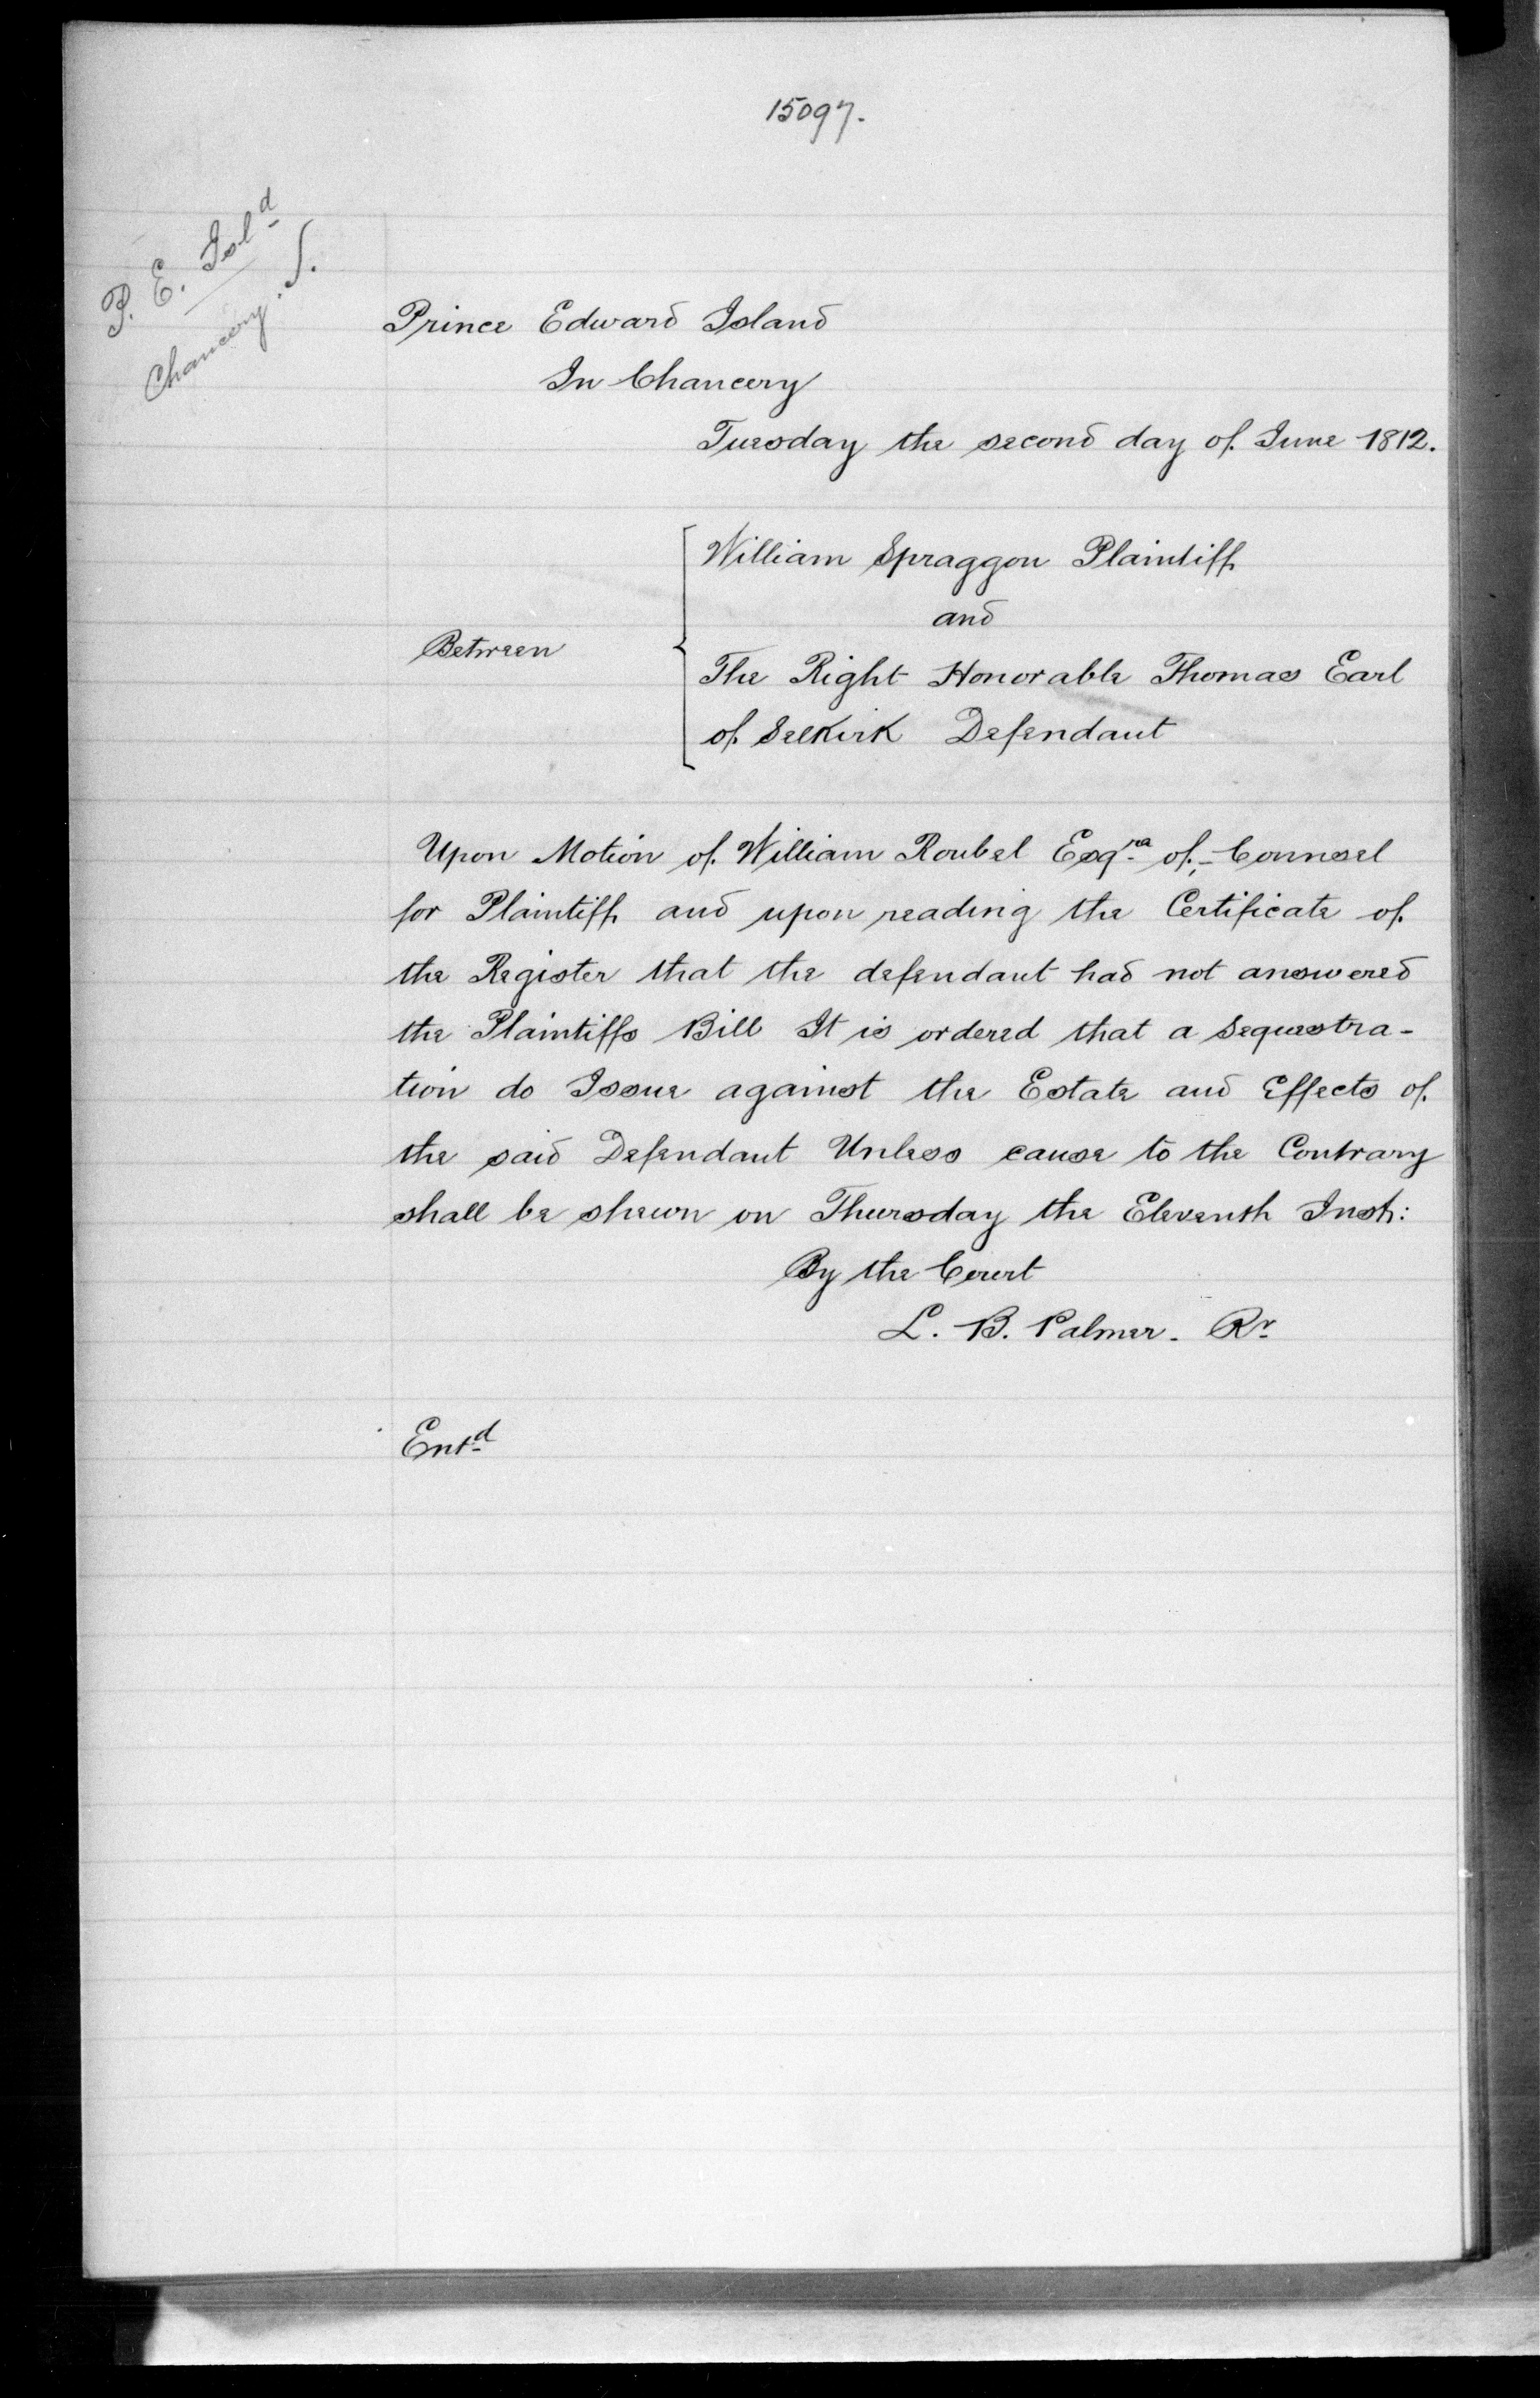 15097.
P. E. Isld
Chancery. S.
Prince Edward Island
In Chancery
Tuesday the second day of June 1812.
William Spraggon Plaintiff
and
Between
The Right Honorable Thomas Earl
of Selkirk Defendant
Upon Motion of William Roubel Esqre of, Counsel
for Plaintiff and upon reading the Certificate of
the Register that the defendant had not answered
the Plaintiffs Bill It is ordered that a Sequestra-
tion do Issue against the Estate and Effects of
the said Defendant Unless cause to the Contrary
shall be shewn on Thursday the Eleventh Inst:
By the Court
L. B. Palmer. Rr
Entd